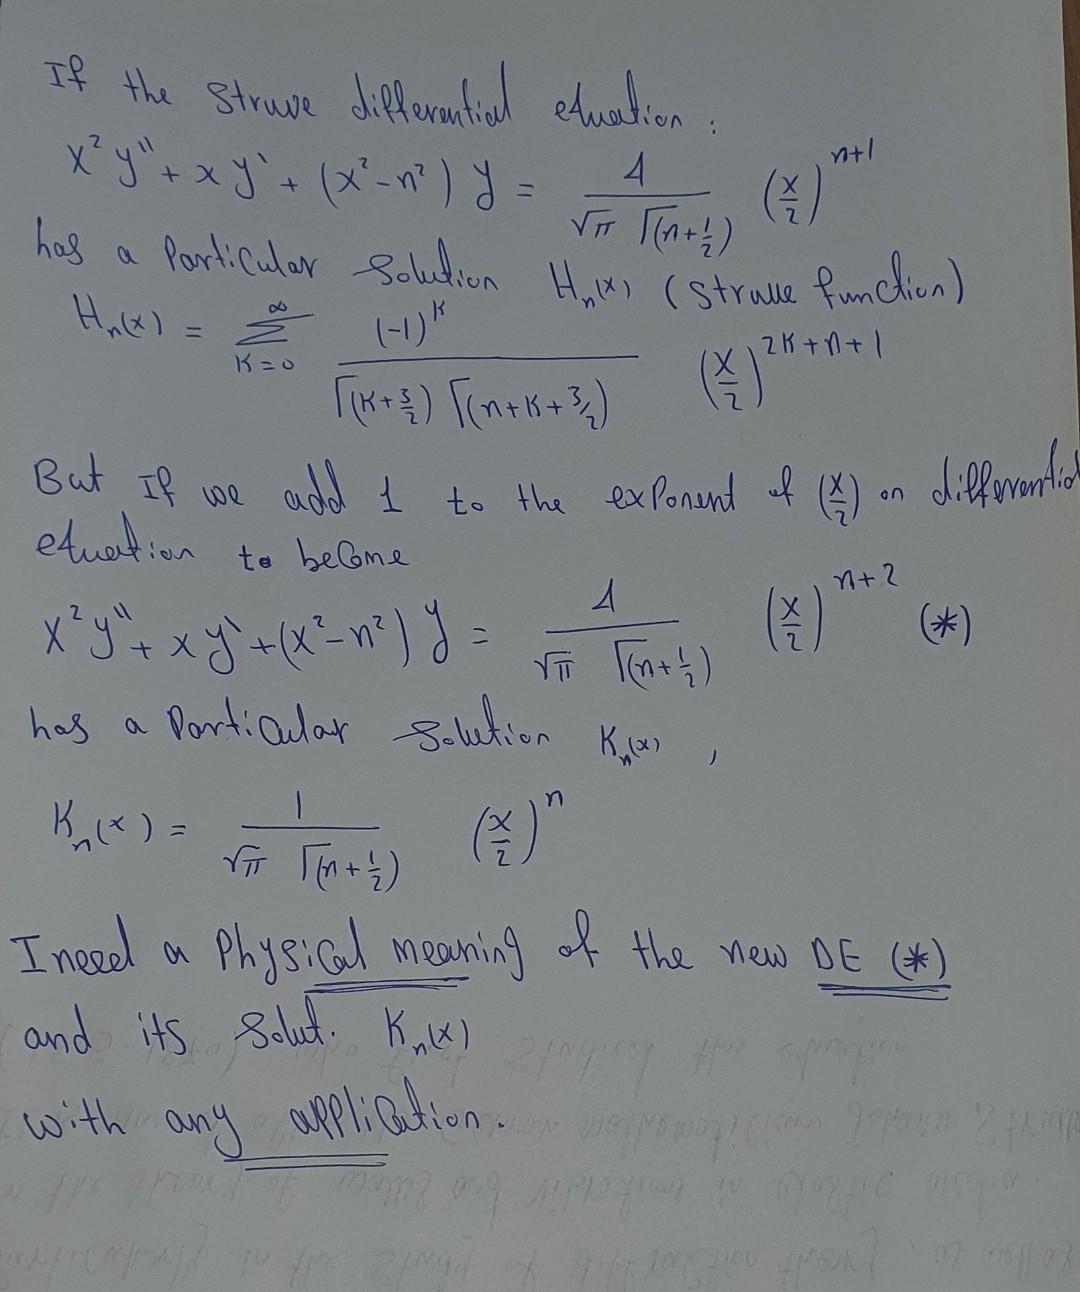 If the Struve differential equation :
x² y'' + x y' + (x² - n²) y = 4 / (√π Γ(n + 1/2)) (x/2)^(n+1)
has a Particular Solution Hₙ(x) (Struve function)
Hₙ(x) = Σ_{K=0}^{∞} (-1)^K / (Γ(K + 3/2) Γ(n + K + 3/2)) (x/2)^(2K+n+1)
But If we add 1 to the exponent of (x/2) on differential
equation to become
x² y'' + x y' + (x² - n²) y = 4 / (√π Γ(n + 1/2)) (x/2)^(n+2) (*)
has a Particular Solution Kₙ(x) ,
Kₙ(x) = 1 / (√π Γ(n + 1/2)) (x/2)^n
I need a Physical meaning of the new DE (*)
and its Solut. Kₙ(x)
with any application.